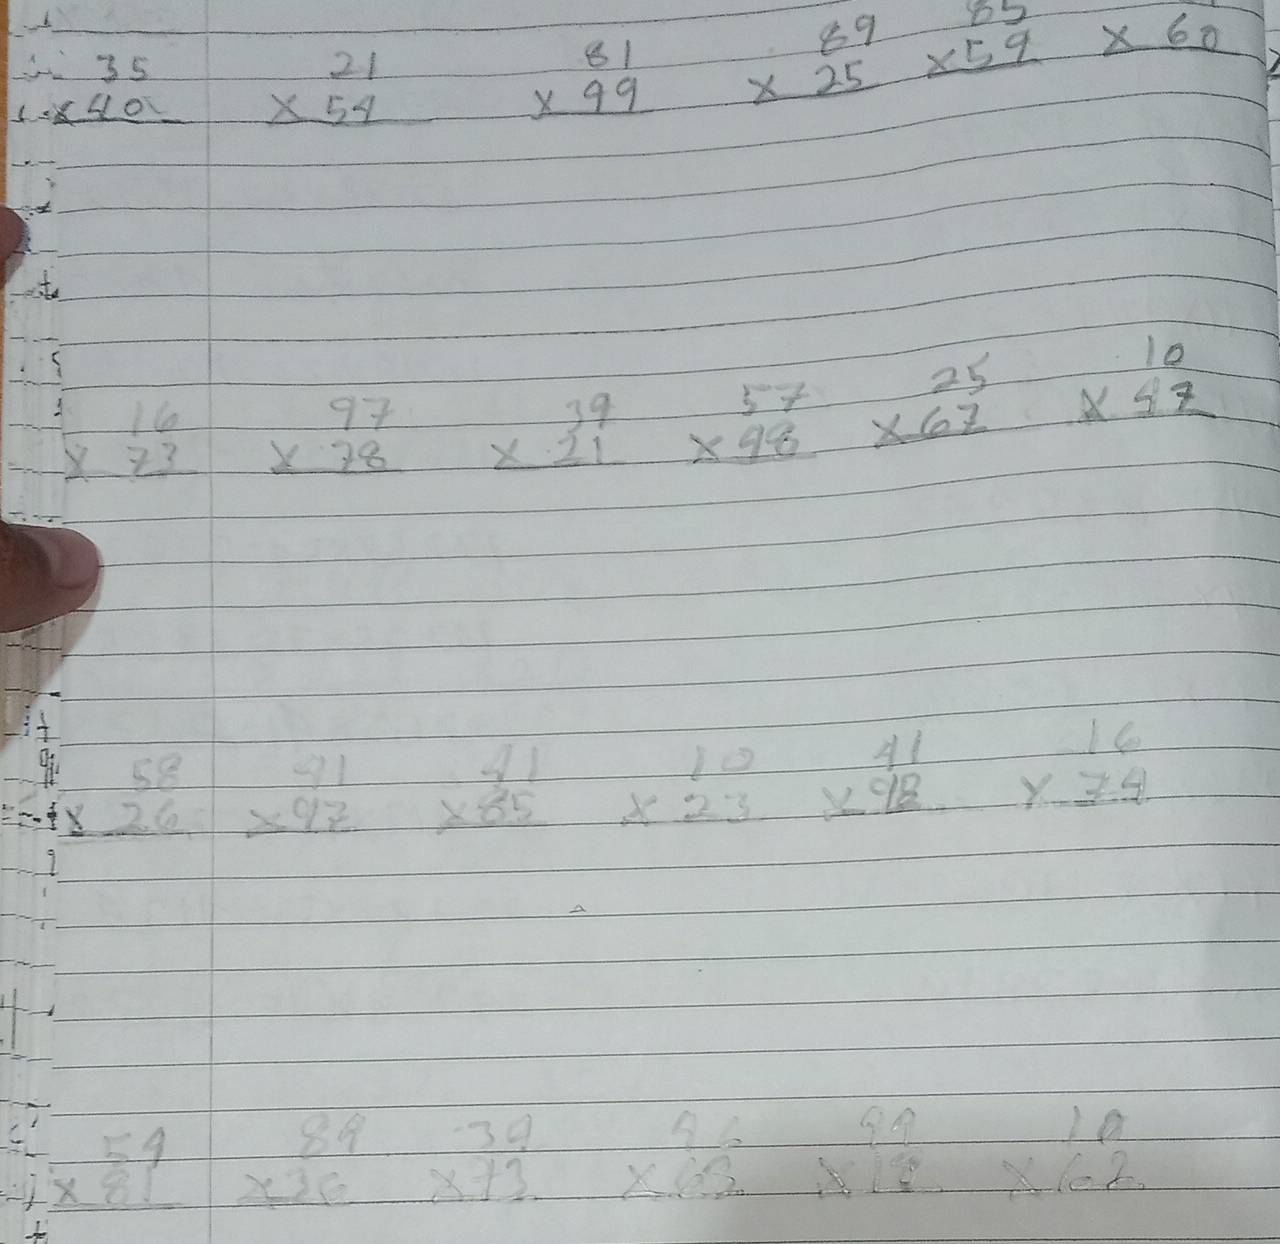 35 21 81 89 85
× 40 × 54 × 99 × 25 × 59 × 60
16 97 39 57 25 10
× 73 × 78 × 21 × 98 × 67 × 47
58 41 41 10 41 16
× 26 × 97 × 85 × 23 × 98 × 74
54 89 39 46 99 10
× 81 × 36 × 73 × 63 × 18 × 62